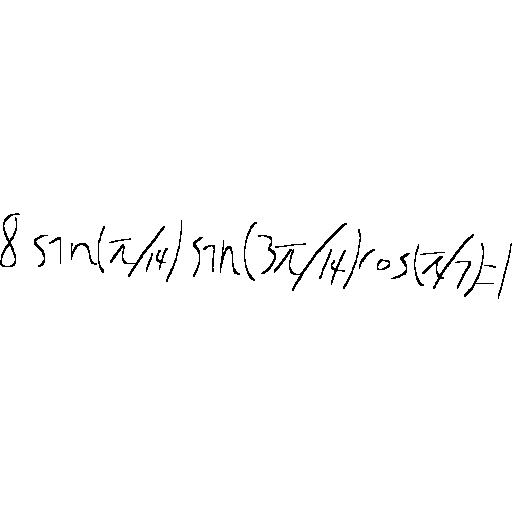 8 sin(π/14) sin(3π/14)cos(π/7)=1